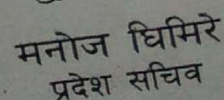 मनोज घिमिरे
प्रदेश सचिव